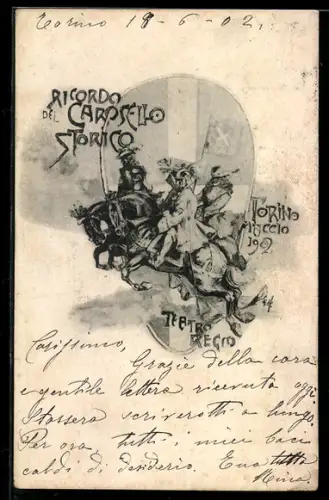 Torino 18-6-02.
RICORDO
DEL CAROSELLO
STORICO
TORINO
1902
TEATRO
REGIO
Carissimo,
Grazie della cara
e gentile lettera ricevuta oggi.
Stassera scriverotti a lungo.
Per ora tutti i miei baci
caldi di desiderio. Tua tutta
Nina.